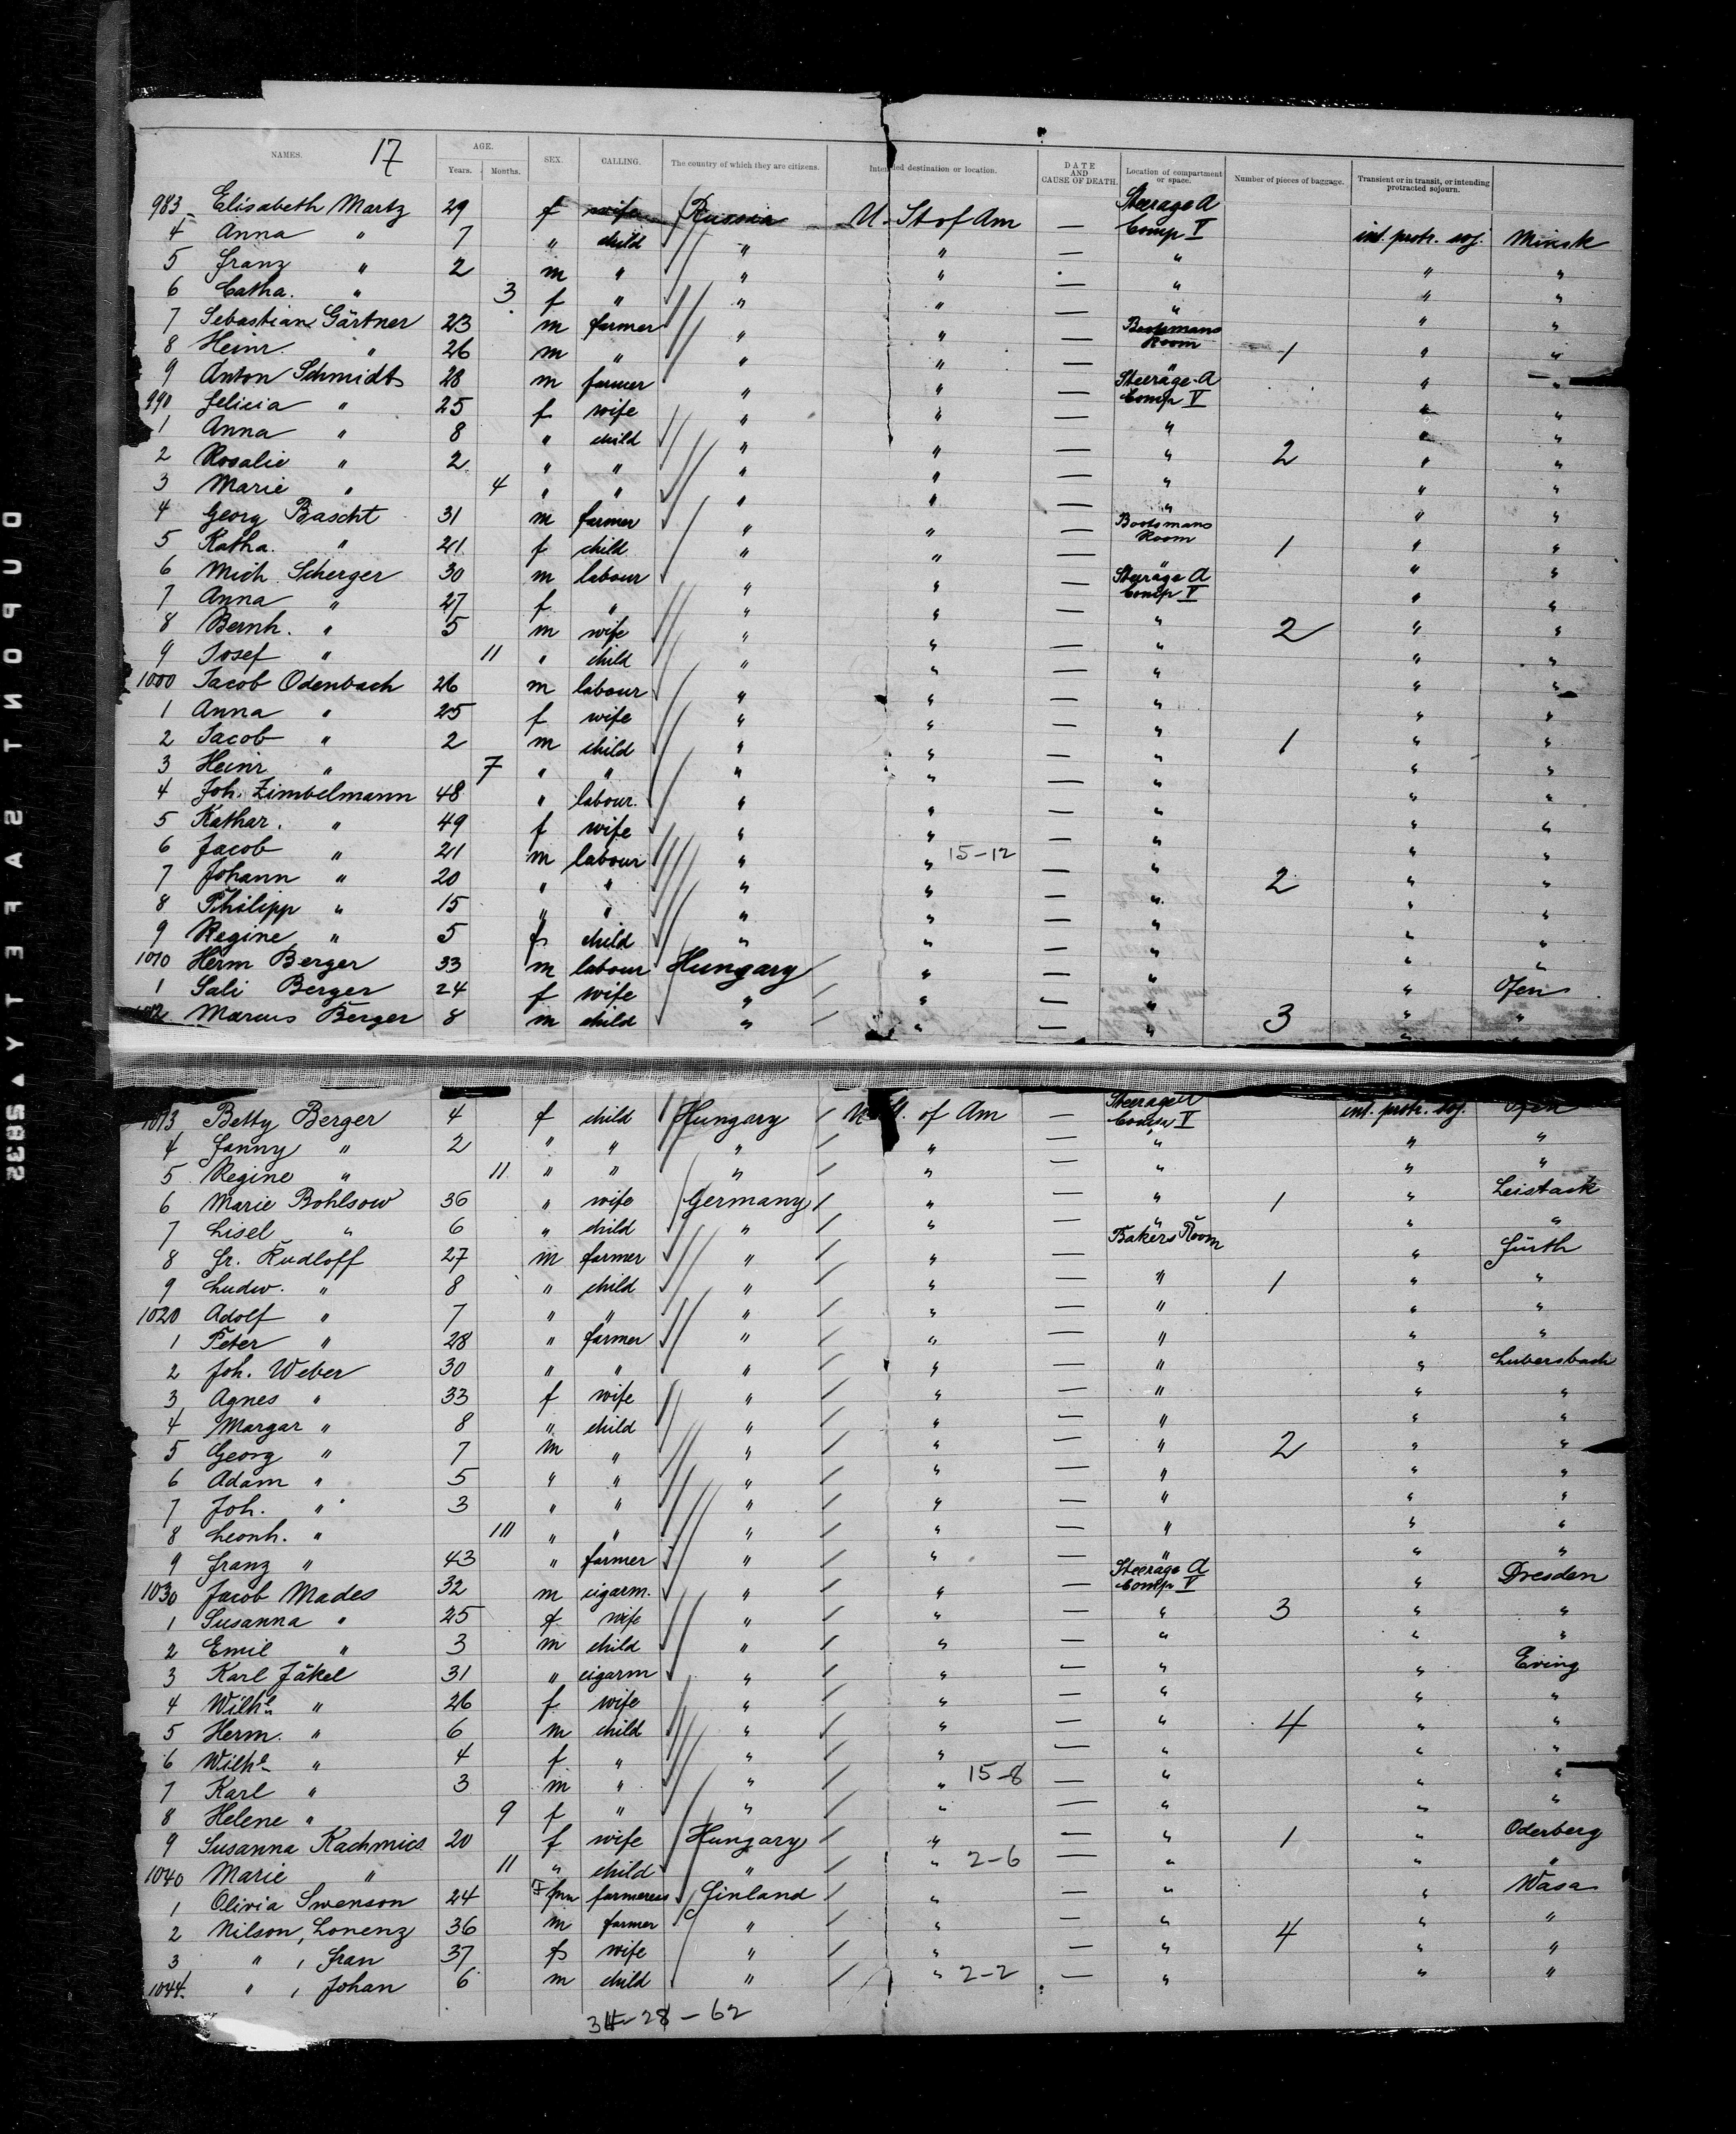 NAMES. 17 AGE. Years. Months. SEX. CALLING. The country of which they are citizens. Intended destination or location. DATE AND CAUSE OF DEATH. Location of compartment or space. Number of pieces of baggage. Transient or in transit, or intending protracted sojourn.
983 Elisabeth Martz 29 f wife Russia U. St of Am — Steerage A Comp V int. protr. soj. Minsk
4 Anna " 7 " child " " — " " "
5 Franz " 2 m " " " — " " "
6 Catha. " 3 f " " " — " " "
7 Sebastian Gärtner 23 m farmer " " — Bootsmans Room " "
8 Heinr. " 26 m " " " — " 1 " "
9 Anton Schmidt 28 m farmer " " — Steerage A Comp V " "
990 Felicia " 25 f wife " " — " " "
1 Anna " 8 " child " " — " 2 " "
2 Rosalie " 2 " " " " — " " "
3 Marie " 4 " " " " — " " "
4 Georg Bascht 31 m farmer " " — Bootsmans Room " "
5 Katha. " 21 f child " " — " 1 " "
6 Mich Scherger 30 m labour " " — Steerage A Comp V " "
7 Anna " 27 f " " " — " " "
8 Bernh. " 5 m wife " " — " 2 " "
9 Josef " 11 " child " " — " " "
1000 Jacob Odenbach 26 m labour " " — " " "
1 Anna " 25 f wife " " — " " "
2 Jacob " 2 m child " " — " 1 " "
3 Heinr " 7 " " " " — " " "
4 Joh. Zimbelmann 48 " labour. " " — " " "
5 Kathar. " 49 f wife " " — " " "
6 Jacob " 21 m labour " " 15-12 — " " "
7 Johann " 20 " " " " — " 2 " "
8 Philipp " 15 " " " " — " " "
9 Regine " 5 f child " " — " " "
1010 Herm Berger 33 m labour Hungary " — " " Ofen
1 Sali Berger 24 f wife " " — " " "
1012 Marcus Berger 8 m child " " — " 3 "
1013 Betty Berger 4 f child Hungary U. St. of Am — Steerage A Comp V int. protr. soj. Ofen
4 Fanny " 2 " " " " — " " "
5 Regine " 11 " " " " — " " "
6 Marie Bohlsow 36 " wife Germany " — " 1 " Leistack
7 Lisel " 6 " child " " — " " "
8 Fr. Rudloff 27 m farmer " " — Bakers Room " Fürth
9 Ludw. " 8 " child " " — " 1 " "
1020 Adolf " 7 " " " " — " " "
1 Peter " 28 " farmer " " — " " "
2 Joh. Weber 30 " " " " — " " Lubersbach
3 Agnes " 33 f wife " " — " " "
4 Margar " 8 " child " " — " " "
5 Georg " 7 m " " " — " 2 " "
6 Adam " 5 " " " " — " " "
7 Joh. " 3 " " " " — " " "
8 Leonh. " " " " " — " " "
9 Franz " 43 " farmer " " — " " "
1030 Jacob Mades 32 m cigarm. " " — Steerage A Comp V " Dresden
1 Susanna " 25 f wife " " — " 3 " "
2 Emil " 3 m child " " — " " "
3 Karl Jäkel 31 " cigarm " " — " " Eving
4 Wilhe " 26 f wife " " — " " "
5 Herm. " 6 m child " " — " 4 " "
6 Wilhe " 4 f " " " — " " "
7 Karl " 3 m " " " 15-8 — " " "
8 Helene " 9 f " " " — " " "
9 Susanna Kachmics 20 f wife Hungary " — " 1 " Oderberg
1040 Marie " 11 " child " " 2-6 — " " "
1 Olivia Swenson 24 F farmeress Finland " — " " Wasa
2 Nilson, Lorenz 36 m farmer " " — " 4 " "
3 " , Fran 37 f wife " " — " " "
1044. " , Johan 6 m child " " 2-2 — " " "
34-28-62
DUPONT SAFETY 5832